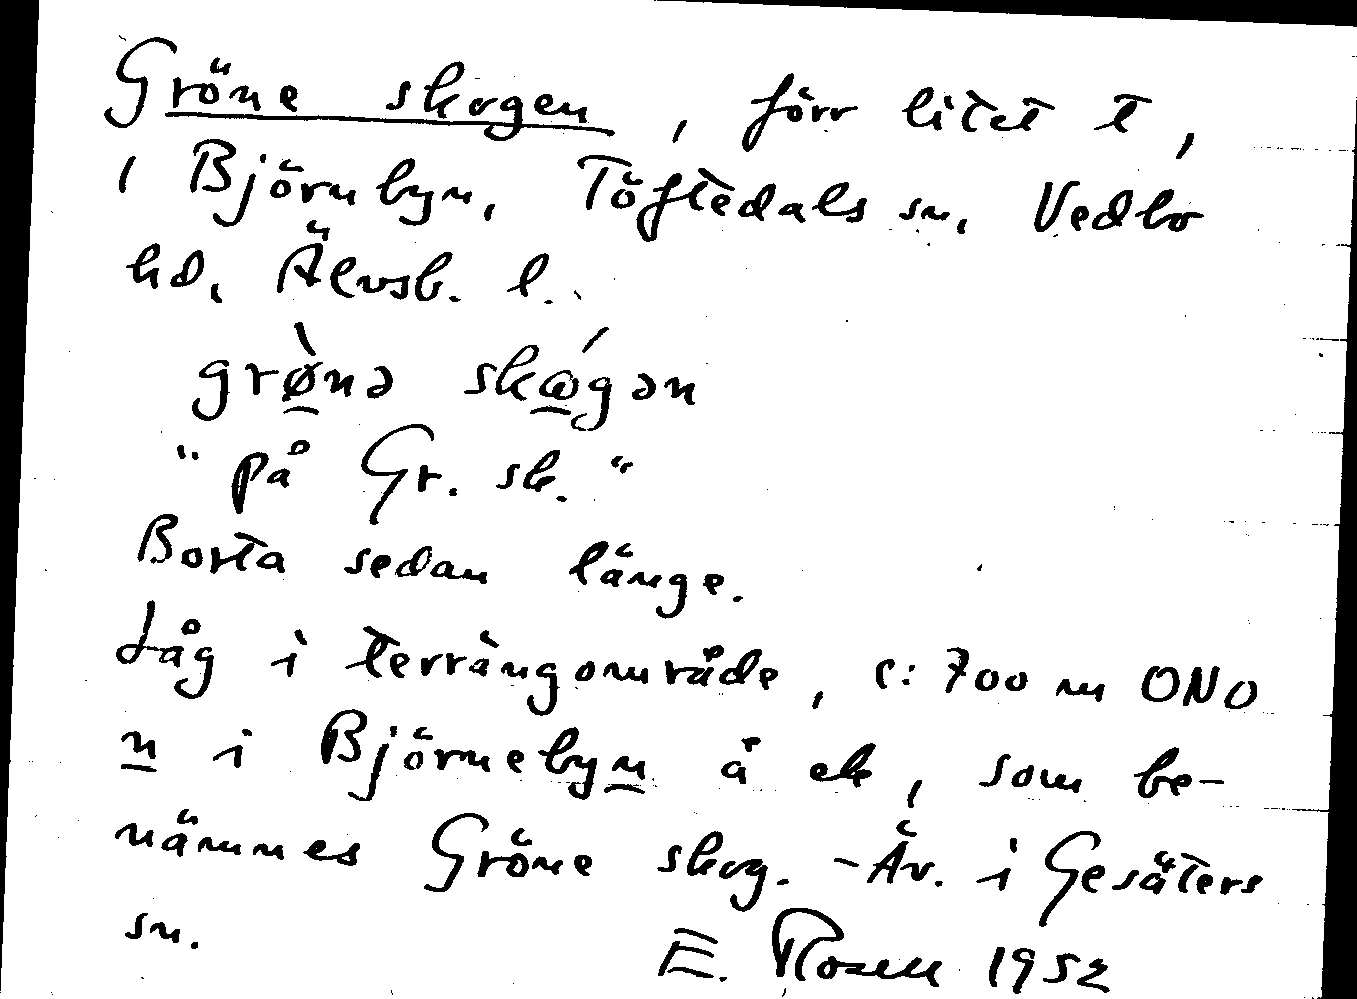 Gröne skogen, förr litet t,
i Björnbyn, Töftedals sn, Vedbo
hd, Älvsb. l.
grø̀nə skǿgən
"på Gr. sk."
Borta sedan länge.
Låg i terrängområde, c:700 m ONO
n i Björnebyn å ek, som be-
nämnes Gröne skog. - Äv. i Gesäters
sn.
E. Rosell 1952